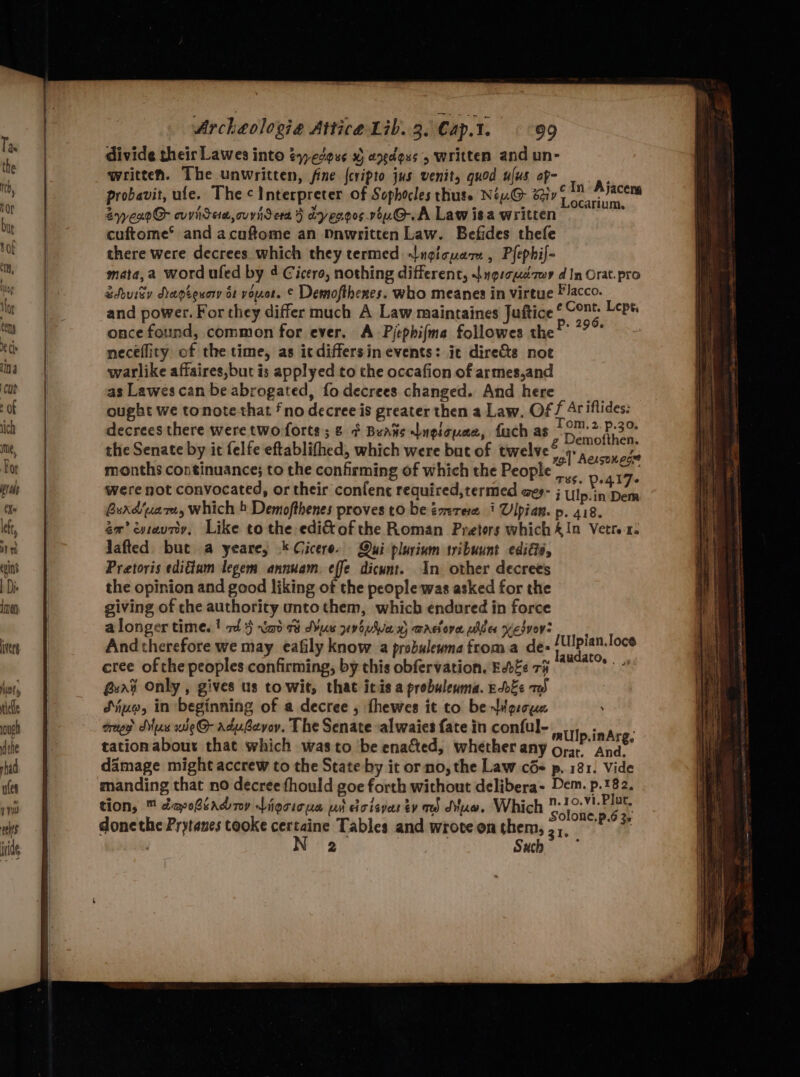 Archæologiæ Atticæ Lib. 3. Cap. 1. 99
divide their Lawes into ἐγγράφους κ̀ ἀγράφους, written and un-
written. The unwritten, sine scripto jus venit, quod usus ap-
probavit, use. The c Interpreter of Sophocles thus. Νόμος
ἔγγραφος συνήθεια, συνήθεια ἢ ἄγραφος νόμος. A Law is a written
custome: and a custome an vnwritten Law. Besides these
there were decrees which they termed ψηφίσματα, Psephis-
mata, a word used by d Cicero, nothing different,
e Demosthenes. who meanes in virtue
and power. For they differ much A Law maintaines Justice
once found, common for ever. A Psephisma followes the
necessity of the time, as it differs in events: it directs not
warlike affaires, but is applyed to the occasion of armes, and
as Lawes can be abrogated, so decrees changed. And here
ought we to note that f no decree is greater then a Law. Of
decrees there were two sorts; g ἢ Βυλῆς ψηφίσματα, such as
the Senate by it selfe established, which were but of twelve
months continuance; to the confirming of which the People
were not convocated, or their consent required, termed
which h Demosthenes proves to be ἐπέτεια i Ulpian.
ἐπ' ἐνιαυτόν. Like to the edict of the Roman Pretors which
lasted but a yeare, k Cicero. Qui plurium tribuunt edicto,
Prætoris edictum legem annuam esse dicunt. In other decrees
the opinion and good liking of the people was asked for the
giving of the authority unto them, which endured in force
a longer time. l
And therefore we may easily know a probuleuma from a de-
cree of the peoples confirming, by this observation. Ἔδοξε τῇ
βυλῇ only, gives us to wit, that it is a probuleuma. Ἔδοξε τῷ
δήμῳ, in beginning of a decree, shewes it to be ψήφισμα
The Senate alwaies sate in consul-
tation about that which was to be enacted, whether any
damage might accrew to the State by it or no, the Law
manding that no decree should goe forth without delibera-
tion, m Which
done the Prytanes tooke certaine Tables and wrote on them,
N 2 Such
c In Ajacem
Locarium.
d In Orat. pro
Flacco.
e Cont. Lept.
p. 296.
f Aristides:
Tom. 2. p. 30.
g Demosthen.
p. 417.
i Ulp. in Dem
p. 418.
k In Verr. 1.
l Ulpian. loco
laudato,
m Ulp. in Arg.
Orat. And.
p. 181. Vide
Dem. p. 182.
n. 10. vi. Plut.
Solone. p. 63.
31.